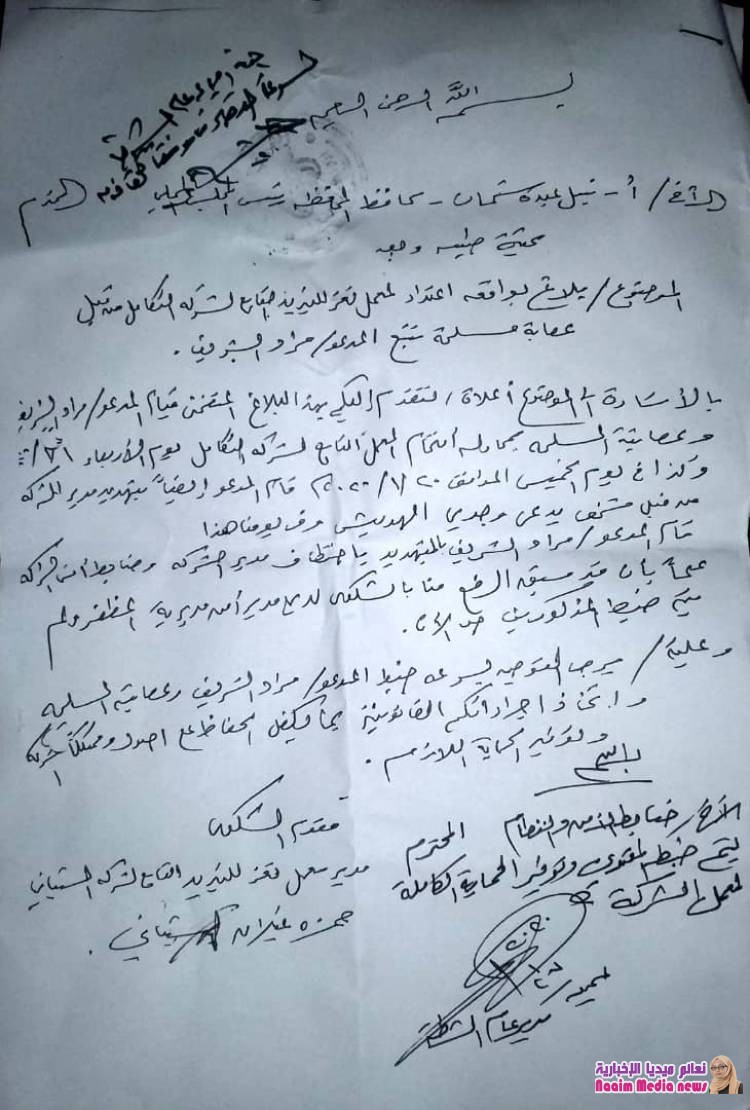 بسم الله الرحمن الرحيم
الأخ/ أ- نبيل عبده شمان - محافظ المحافظة رئيس المجلس المحلي المحترم
تحية طيبة وبعد
الموضوع/ بلاغ بواقعة اعتداء لمعمل تعز للتبريد التابع لشركة التكامل من قبل
عصابة مسلحة تتبع المدعو/ مراد الشريف.
بالأشارة الى الموضوع أعلاة، نتقدم إليكم بهذا البلاغ المتضمن قيام المدعو/ مراد الشريف
وعصابتة المسلحة بمحاولة أقتحام المعمل التابع لشركة التكامل يوم الأربعاء
وكذا في يوم الخميس الموافق ٢٠٢٠/٧/ م قام المدعو إيضاً بتهديد مدير الشركة
من قبل شخص يدعى وجدي وفي يومنا هذا
قام المدعو/ مراد الشريف بالتهديد باختطاف مدير الشركة وضابط أمن الشركة
علماً بأن قد سبق الرفع منا بالشكوى لدى مدير أمن مديرية المظفر ولم
يتم ضبط المذكورين حتى الآن.
وعلية/ يرجى التوجيه بسرعة ضبط المدعو/ مراد الشريف وعصابتة المسلحة
واتخاذ اجراءاتكم القانونية بما يكفل الحفاظ على اصول وممتلكات الشركة
وتوفير الحماية اللازمة.
مقدم الشكوى
مدير معمل تعز للتبريد التابع لشركة
حمزه
الأخ/ ضابط الأمن والنظام المحترم
يتم ضبط وتوفير الحماية الكاملة
لمعمل الشركة
مدير عام الشرطة
نعائم ميديا الإخبارية
Naaim Media news